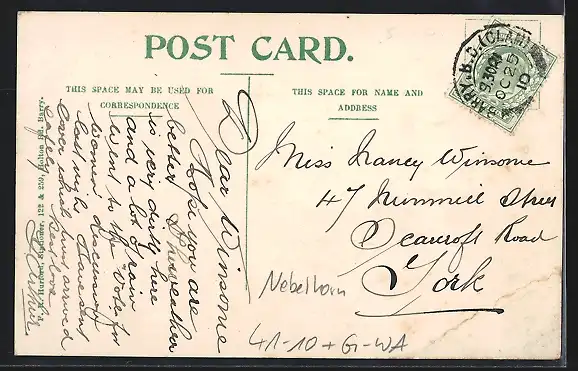 POST CARD.
THIS SPACE MAY BE USED FOR
CORRESPONDENCE
THIS SPACE FOR NAME AND
ADDRESS
BARRY. B.O. (GLAM)
9.30AM
OC 25
10
Dear Winsome
Hope you are
better. Weather
is very dull here
and a lot of rain
went to the "Vote for
Women" discussion
last night. Haven't
Miss Nancy Winsome
47
Road
York
Nebelhorn
41-10 + Gi-WA
122 & 239, Holton Rd., Barry.